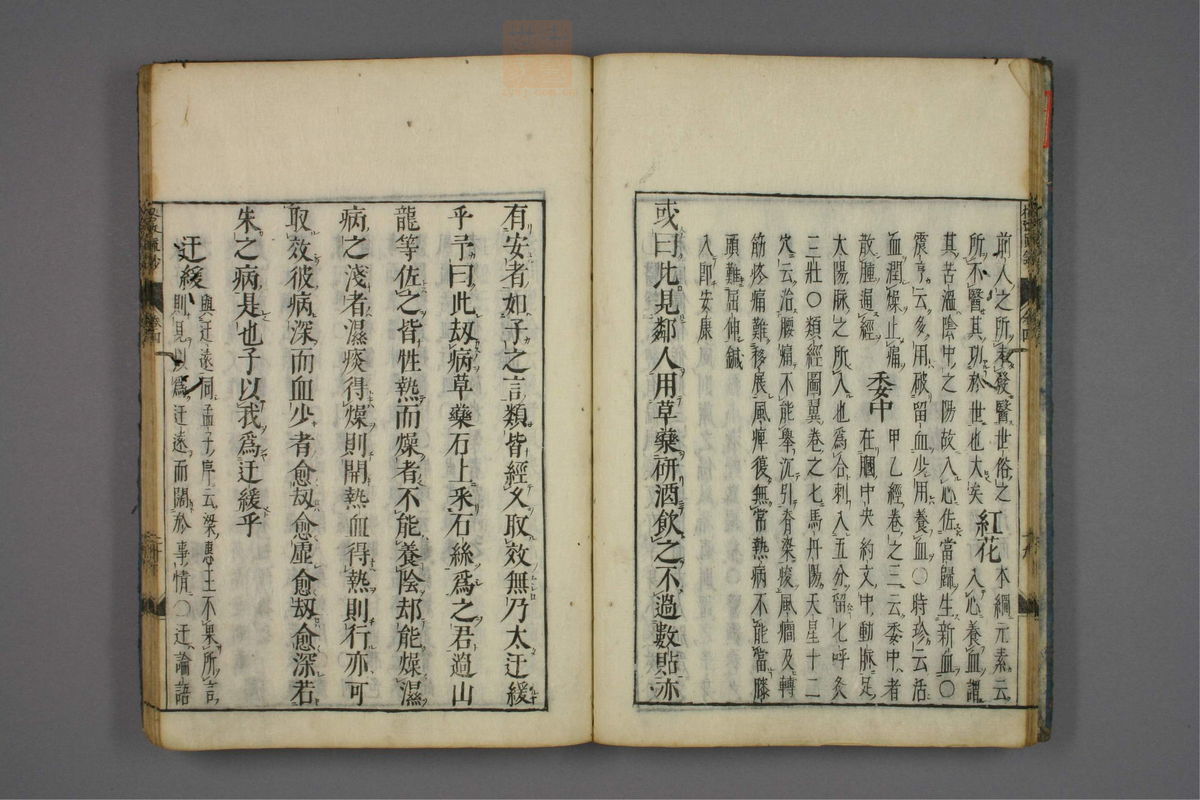 前人之所未發醫世俗之 紅花 本綱元素云
所不醫其功於世也大矣 入心養血謂
其苦溫陰中之陽故入心佐當歸生新血〇
震亨云多用破留血少用養血〇時珍云活
血潤燥止痛
散腫通經 委中 甲乙經卷之三云委中者
在膕中央約文中動脉足
太陽脉之所入也爲合刺入五分留七呼灸
三壯〇類經圖翼卷之七馬丹陽天星十二
穴云治腰痛不能舉沉引脊梁痠風癇及轉
筋疼痛難移展風痺復無常熱病不能當膝
頭難屈伸鍼
入即安康
或曰此見鄰人用草藥研酒飲之不過數貼亦
有安者如子之言類皆經久取效無乃太迂緩
乎予曰此刼病草藥石上采石絲爲之君過山
龍等佐之皆性熱而燥者不能養陰却能燥濕
病之淺者濕痰得燥則開熱血得熱則行亦可
取效彼病深而血少者愈刼愈虛愈刼愈深若
朱之病是也子以我爲迂緩乎
迂緩 與迂遠同孟子序云梁惠王不果所言
則見以爲迂遠而闊於事情〇迂論語